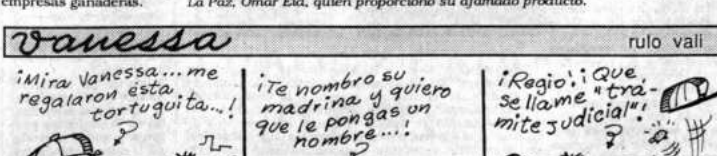 empresas ganaderas.
La Paz, Omar Eid, quien proporcionó su afamado producto.
vanessa
rulo vali
¡Mira Vanessa... me
regalaron ésta
tortuguita...!
¡Te nombro su
madrina y quiero
que le pongas un
nombre...!
¡Regio! ¡Que
se llame "trá-
mite judicial"!